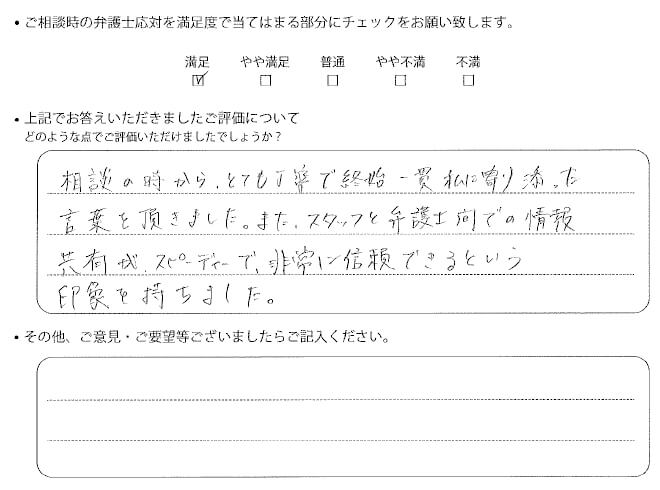 ・ご相談時の弁護士応対を満足度で当てはまる部分にチェックをお願い致します。
満足 やや満足 普通 やや不満 不満
・上記でお答えいただきましたご評価について
どのような点でご評価いただけましたでしょうか？
相談の時から、とても丁寧で終始一貫私に寄り添った
言葉を頂きました。また、スタッフと弁護士間での情報
共有が、スピーディーで、非常に信頼できるという
印象を持ちました。
・その他、ご意見・ご要望等ございましたらご記入ください。